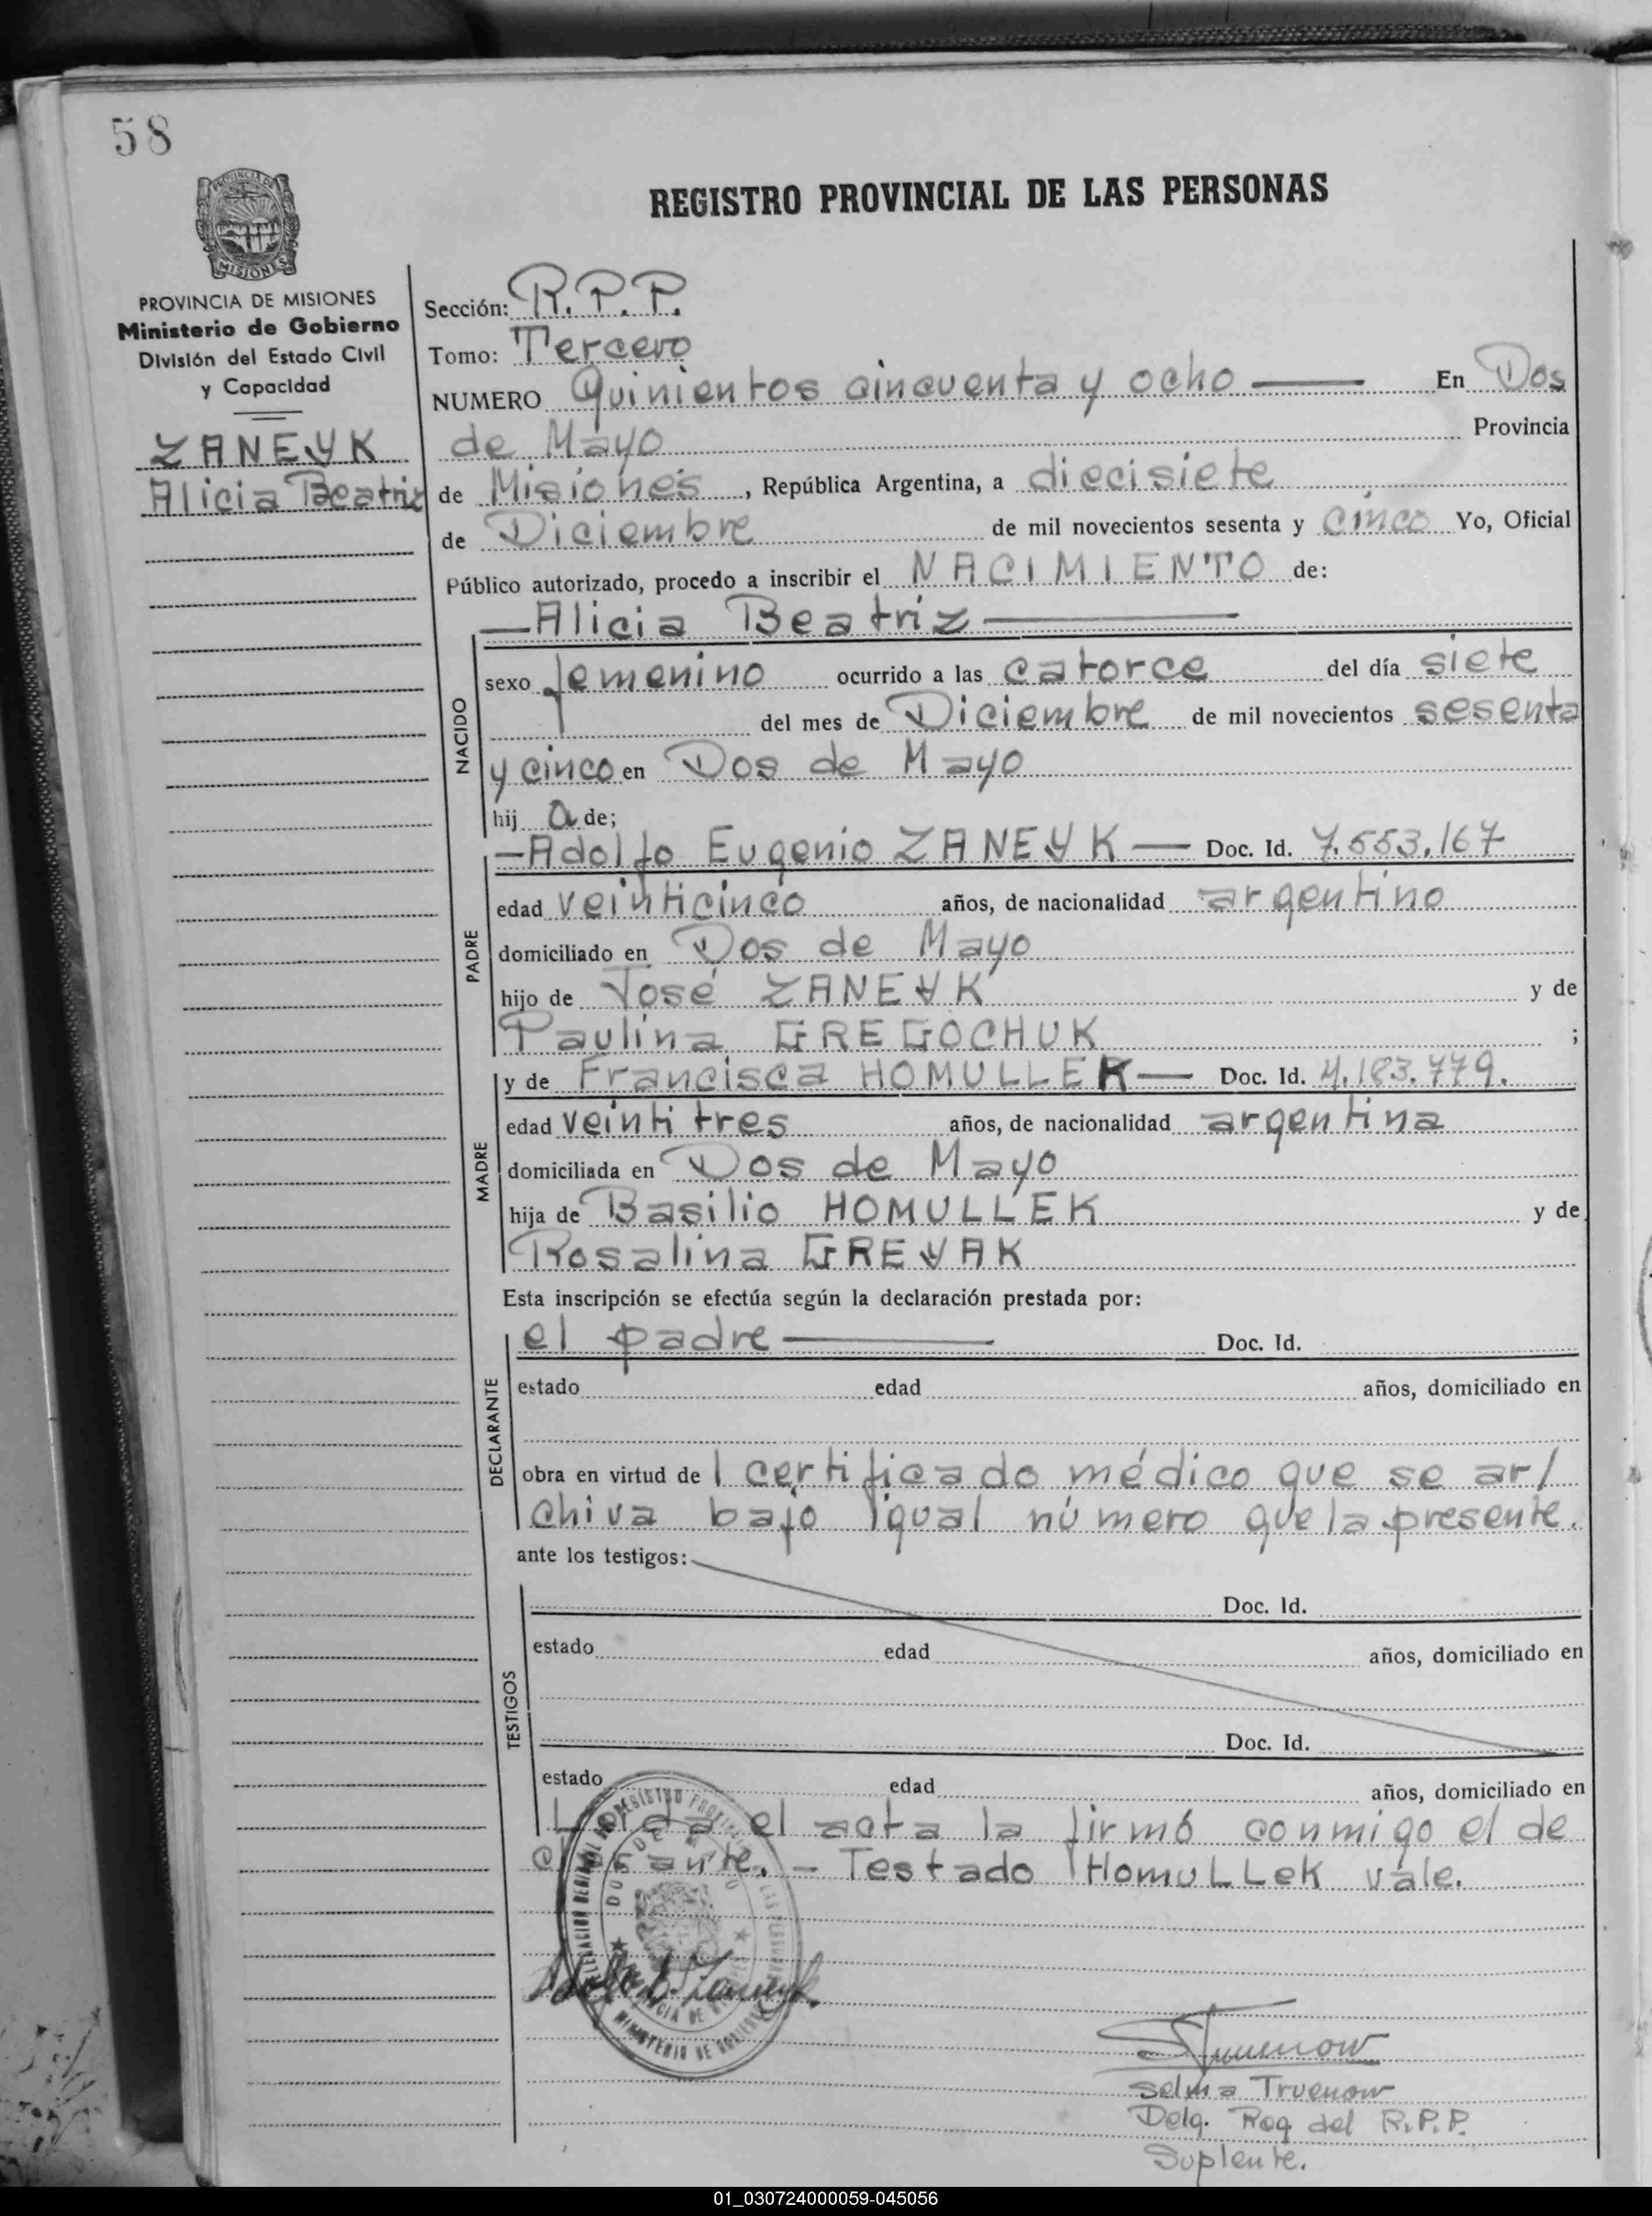 58
PROVINCIA DE
MISIONES
REGISTRO PROVINCIAL DE LAS PERSONAS
PROVINCIA DE MISIONES
Ministerio de Gobierno
División del Estado Civil
y Capacidad
ZANEYK
Alicia Beatriz
Sección: R.P.P.
Tomo: Tercero
NUMERO Quinientos cincuenta y ocho — En Dos
de Mayo Provincia
de Misiones, República Argentina, a diecisiete
de Diciembre de mil novecientos sesenta y cinco Yo, Oficial
Público autorizado, procedo a inscribir el NACIMIENTO de:
—Alicia Beatriz—
NACIDO
sexo femenino ocurrido a las catorce del día siete
del mes de Diciembre de mil novecientos sesenta
y cinco en Dos de Mayo
hij a de;
PADRE
—Adolfo Eugenio ZANEYK— Doc. Id. 7.553.167
edad veinticinco años, de nacionalidad argentino
domiciliado en Dos de Mayo
hijo de José ZANEYK y de
Paulina GREGOCHUK ;
MADRE
y de Francisca HOMULLEK— Doc. Id. 4.183.779.
edad veinti tres años, de nacionalidad argentina
domiciliada en Dos de Mayo
hija de Basilio HOMULLEK y de
Rosalina GREYAK
Esta inscripción se efectúa según la declaración prestada por:
DECLARANTE
el padre— Doc. Id.
estado edad años, domiciliado en
obra en virtud de l certificado médico que se ar/
chiva bajo igual número que la presente.
ante los testigos:
TESTIGOS
Doc. Id.
estado edad años, domiciliado en
Doc. Id.
estado edad años, domiciliado en
Leida el acta la firmó conmigo el de
clarante.- Testado HomuLLeK vale.
Selma Truenow
Delg. Reg del R.P.P.
Suplente.
01_030724000059-045056